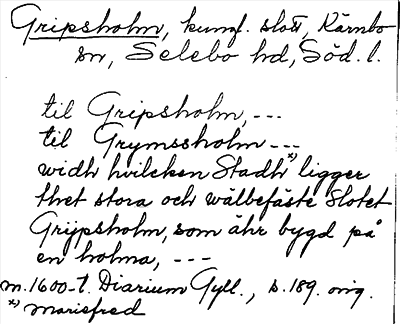 Gripsholm, kungl. slott, Kärnbo
sn, Selebo hd, Söd. l.
til Gripsholm, ---
til Grymssholm ---
widh hvilcken Stadh *) ligger
thet stora och wälbefäste Slotet
Grijpsholm, som ähr bygd på
en holma, ---
m. 1600-t. Diarium Gyll., s. 189. orig.
*) Mariefred